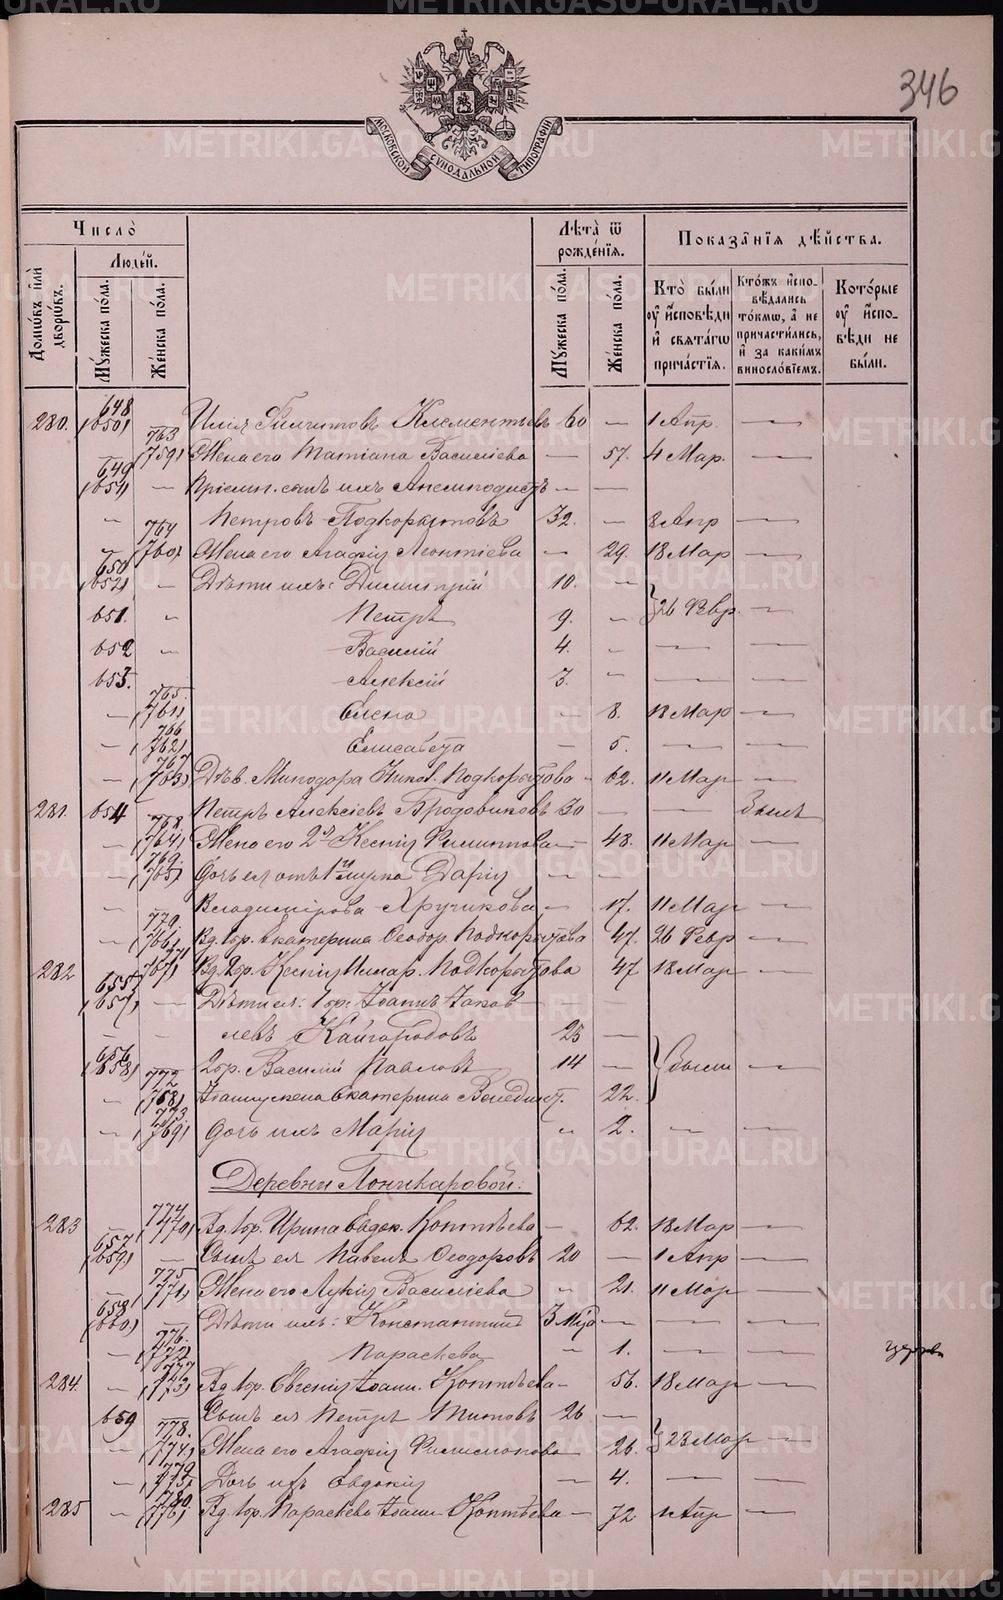 346
МОСКОВСКОЙ СѴНОДАЛЬНОЙ ТИПОГРАФІИ
Число̀
Лѣ́та ѿ рождє́нїѧ.
Показа̑нїѧ дѣ́йства.
Людє́й.
Домѡ́въ и҆лѝ дворѡ́въ.
Мꙋ́жеска по́ла.
Же́нска по́ла.
Мꙋ́жеска по́ла.
Же́нска по́ла.
Кто̀ бы́ли оу҆ и҆сповѣ́ди и҆ свѧта́гѡ прича́стїѧ.
Кто́жъ и҆сповѣ́дались то́кмѡ, а҆ не причасти́лись, и҆ за каки́мъ винослові́емъ.
Кото́рые оу҆ и҆сповѣ́ди не бы́ли.
280. 648 (650) Илія Филитовъ Клементьевъ 60 — 1 Апр. —
763 (759) Жена его Татіана Василіева — 57. 4 Мар. —
649 (651) — Пріемн. сынъ ихъ Анемподистъ — —
" Петровъ Подкорытовъ 32. — 8 Апр —
764 (760) Жена его Агафія Леонтіева — 29. 18 Мар —
650 (652) — Дѣти ихъ: Димитрій 10. "
651. " Петръ 9. " } 26 Февр. —
652 " Василій 4. — — —
653. Алексій 3. — — —
— 765. (761) Елена — 8. 18 Мар —
— 766 (762) Елисавета — 5. — —
— 767 (763) Дѣв. Минодора Никол. Подкорытова — 62. 11 Мар —
281. 654 — Петръ Алексіевъ Бродовиковъ 30 — — Зыпь
— 768. (764) Жена его 2я Ксенія Филиппова — 48. 11 Мар —
— 769. (765) Дочь ея отъ 1 мужа Дарія — —
— Владимірова Хручикова — 17. 11 Мар —
— 770. (766) Вд. 1бр. Екатерина Ѳеодор. Подкорытова 47. 26 Февр —
282 771 (767) Вд. 2бр. Ксенія Подкорытова 47 18 Мар —
655 (657) — Дѣти ея: 1 бр. Іоаннъ Іаков
— — левъ Кайгородовъ 25 —
656 (658) 2 бр. Василій Павловъ 14 — } были —
— 772 (768) Іоанну жена Екатерина Венедикт. 22. —
— 773. (769) Дочь ихъ Марія " 2. — —
Деревни Поникаровой:
283 774 (770) Вд. 1бр. Ирина Евдок. Коптѣева — 62. 18 Мар —
657 (659) — Сынъ ея Павелъ Ѳеодоровъ 20 — 1 Апр —
775 (771) Жена его Лукія Василіева " 21. 11 Мар —
658 (660) — Дѣти ихъ: Константинъ 3 мѣс — — —
— 776. (772) Параскева " 1. — —
284. — 777 (773) Вд. 1бр. Евгенія Іоанн. Коптѣева — 56. 18 Мар —
659 Сынъ ея Петръ Титовъ 26 —
— 778. (774) Жена его Агафія Филимонова — 26. } 23 Мар —
— 779 (775) Дочь ихъ Евдокія — 4. — —
285 — 780. (776) Вд. 1бр. Параскева Іоанн. Коптѣева — 72 1 Апр —
METRIKI.GASO-URAL.RU